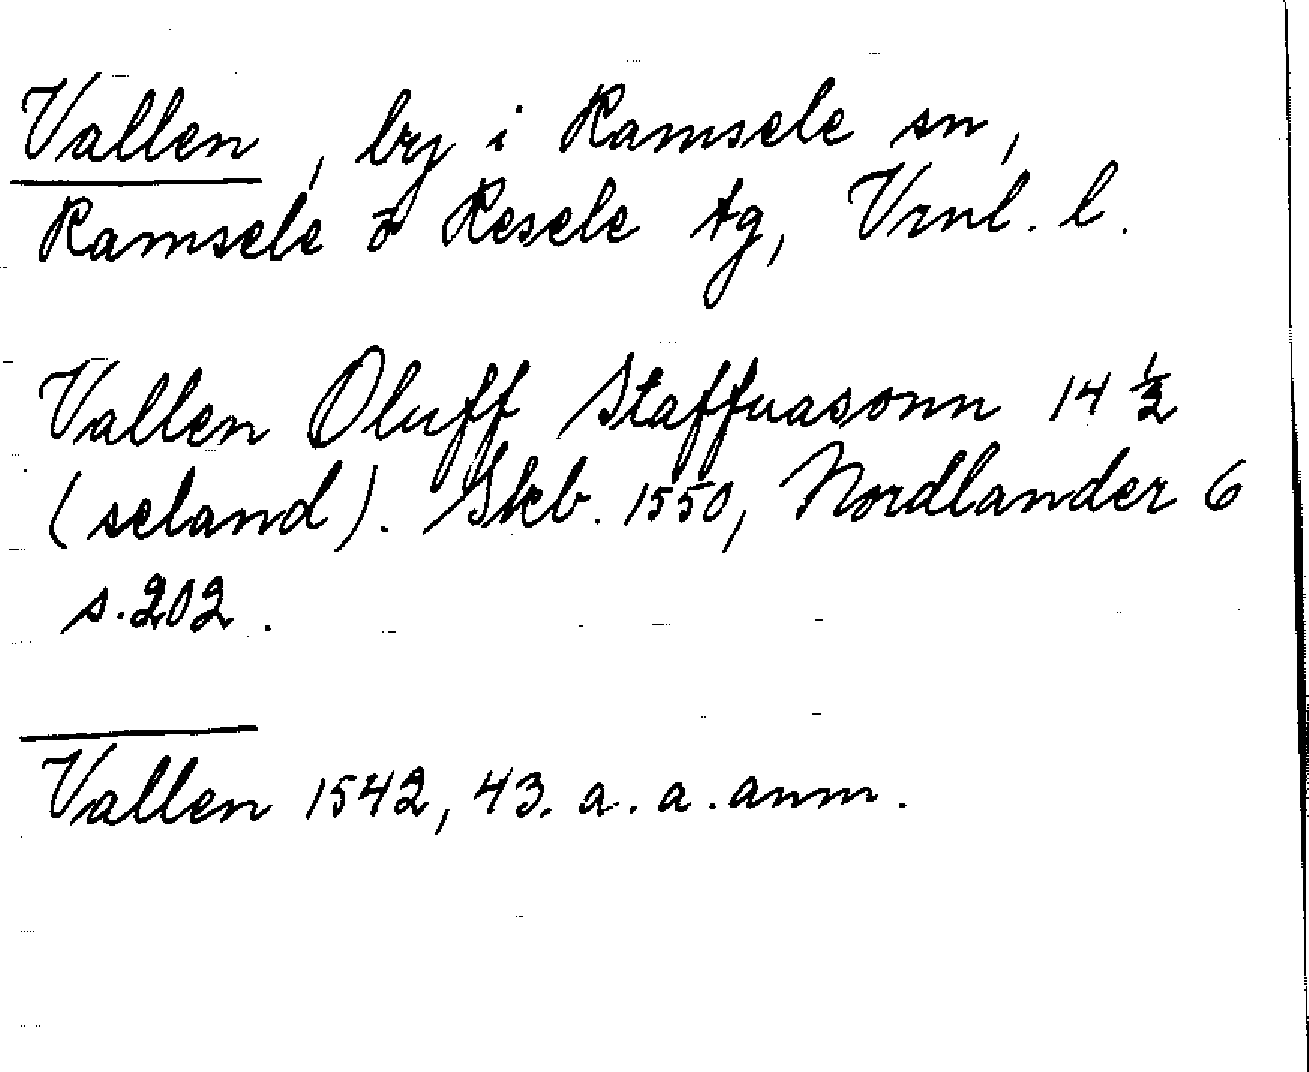 Vallen, by i Ramsele sn,
Ramsele o Resele tg, Vrnl. l.
Vallen Oluff Staffuasonn 14 ½
(seland). Skb. 1550, Nordlander 6
s. 202.
Vallen 1542, 43. a. a. anm.